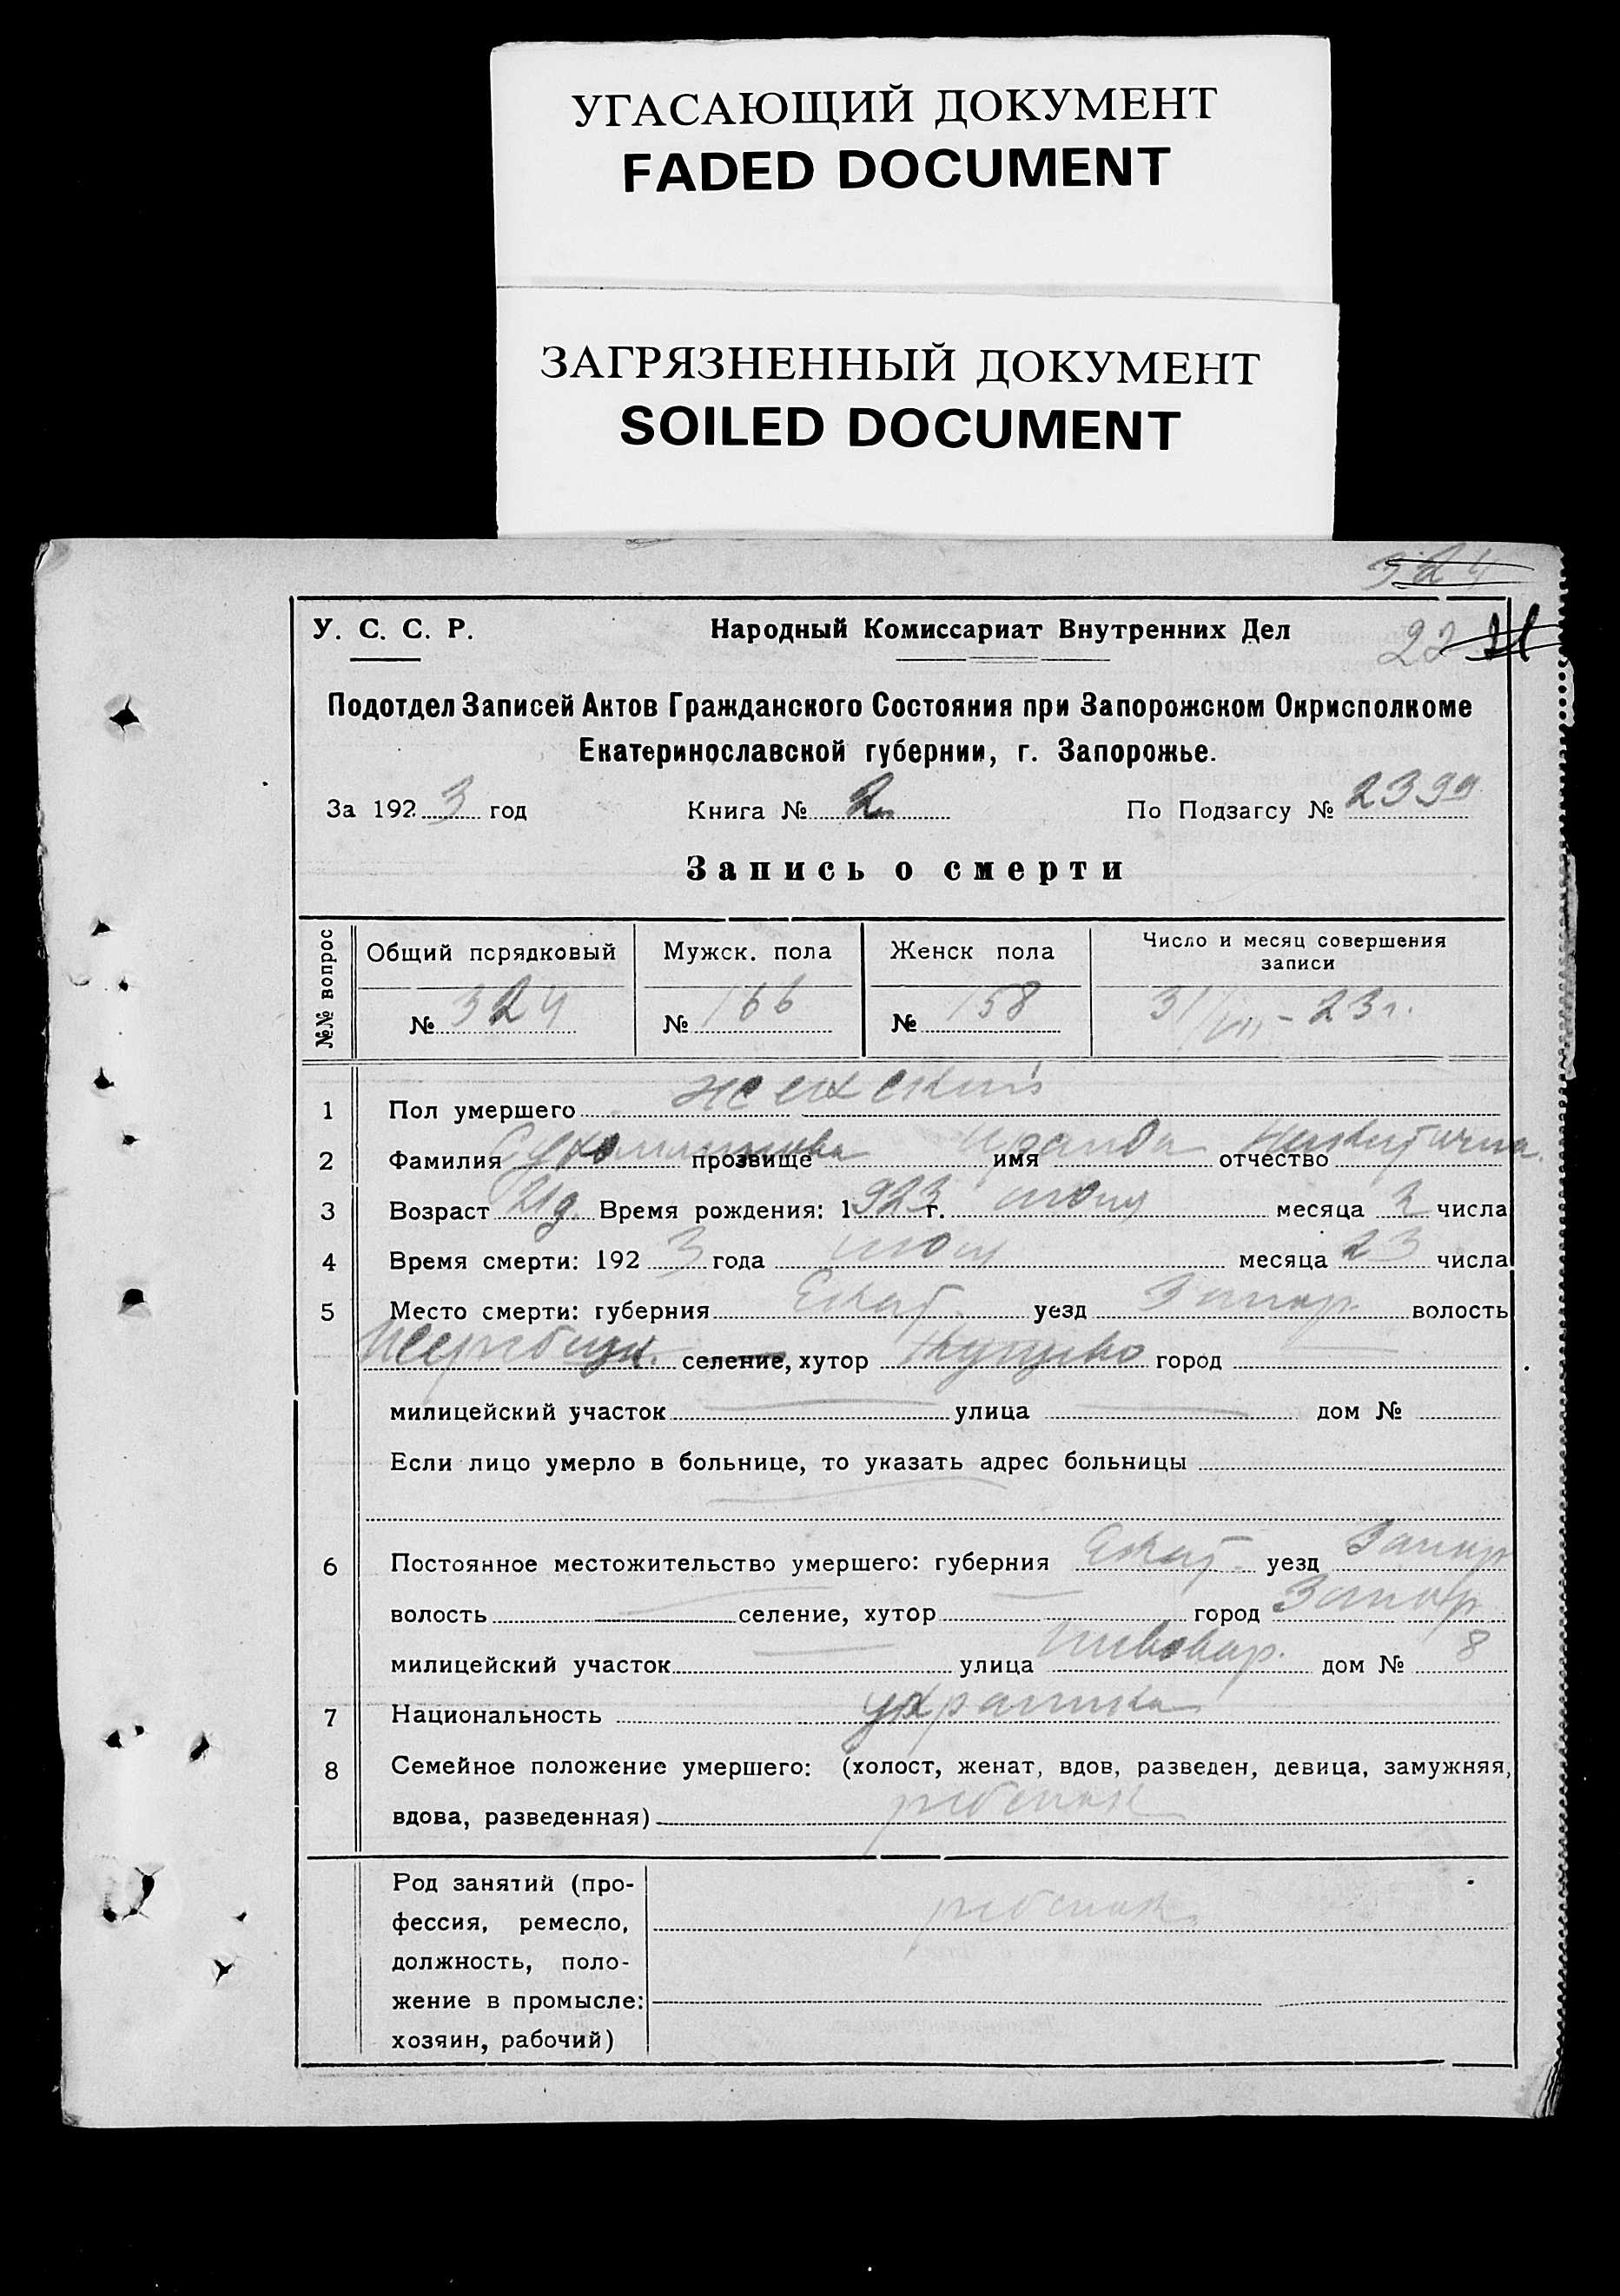 УГАСАЮЩИЙ ДОКУМЕНТ
FADED DOCUMENT
ЗАГРЯЗНЕННЫЙ ДОКУМЕНТ
SOILED DOCUMENT
324
У. С. С. Р. Народный Комиссариат Внутренних Дел
22
Подотдел Записей Актов Гражданского Состояния при Запорожском Окрисполкоме
Екатеринославской губернии, г. Запорожье.
За 1923 год Книга № 2 По Подзагсу №
Запись о смерти
№№ вопрос Общий порядковый Мужск. пола Женск пола Число и месяц совершения
записи
№ 324 № 166 № 158 31/VII - 23 г.
1 Пол умершего женский
2 Фамилия Сухомлинова прозвище имя Ираида отчество Никитична
3 Возраст 21 д. Время рождения: 1923 г. июля месяца 2 числа
4 Время смерти: 1923 года июля месяца 23 числа
5 Место смерти: губерния Екат. уезд Запор. волость
селение, хутор город
милицейский участок улица дом №
Если лицо умерло в больнице, то указать адрес больницы
6 Постоянное местожительство умершего: губерния Екат. уезд Запор
волость селение, хутор город Запор
милицейский участок улица Пивовар. дом № 8
7 Национальность украинка
8 Семейное положение умершего: (холост, женат, вдов, разведен, девица, замужняя,
вдова, разведенная) ребенок
Род занятий (про-
фессия, ремесло, ребенок
должность, поло-
жение в промысле:
хозяин, рабочий)